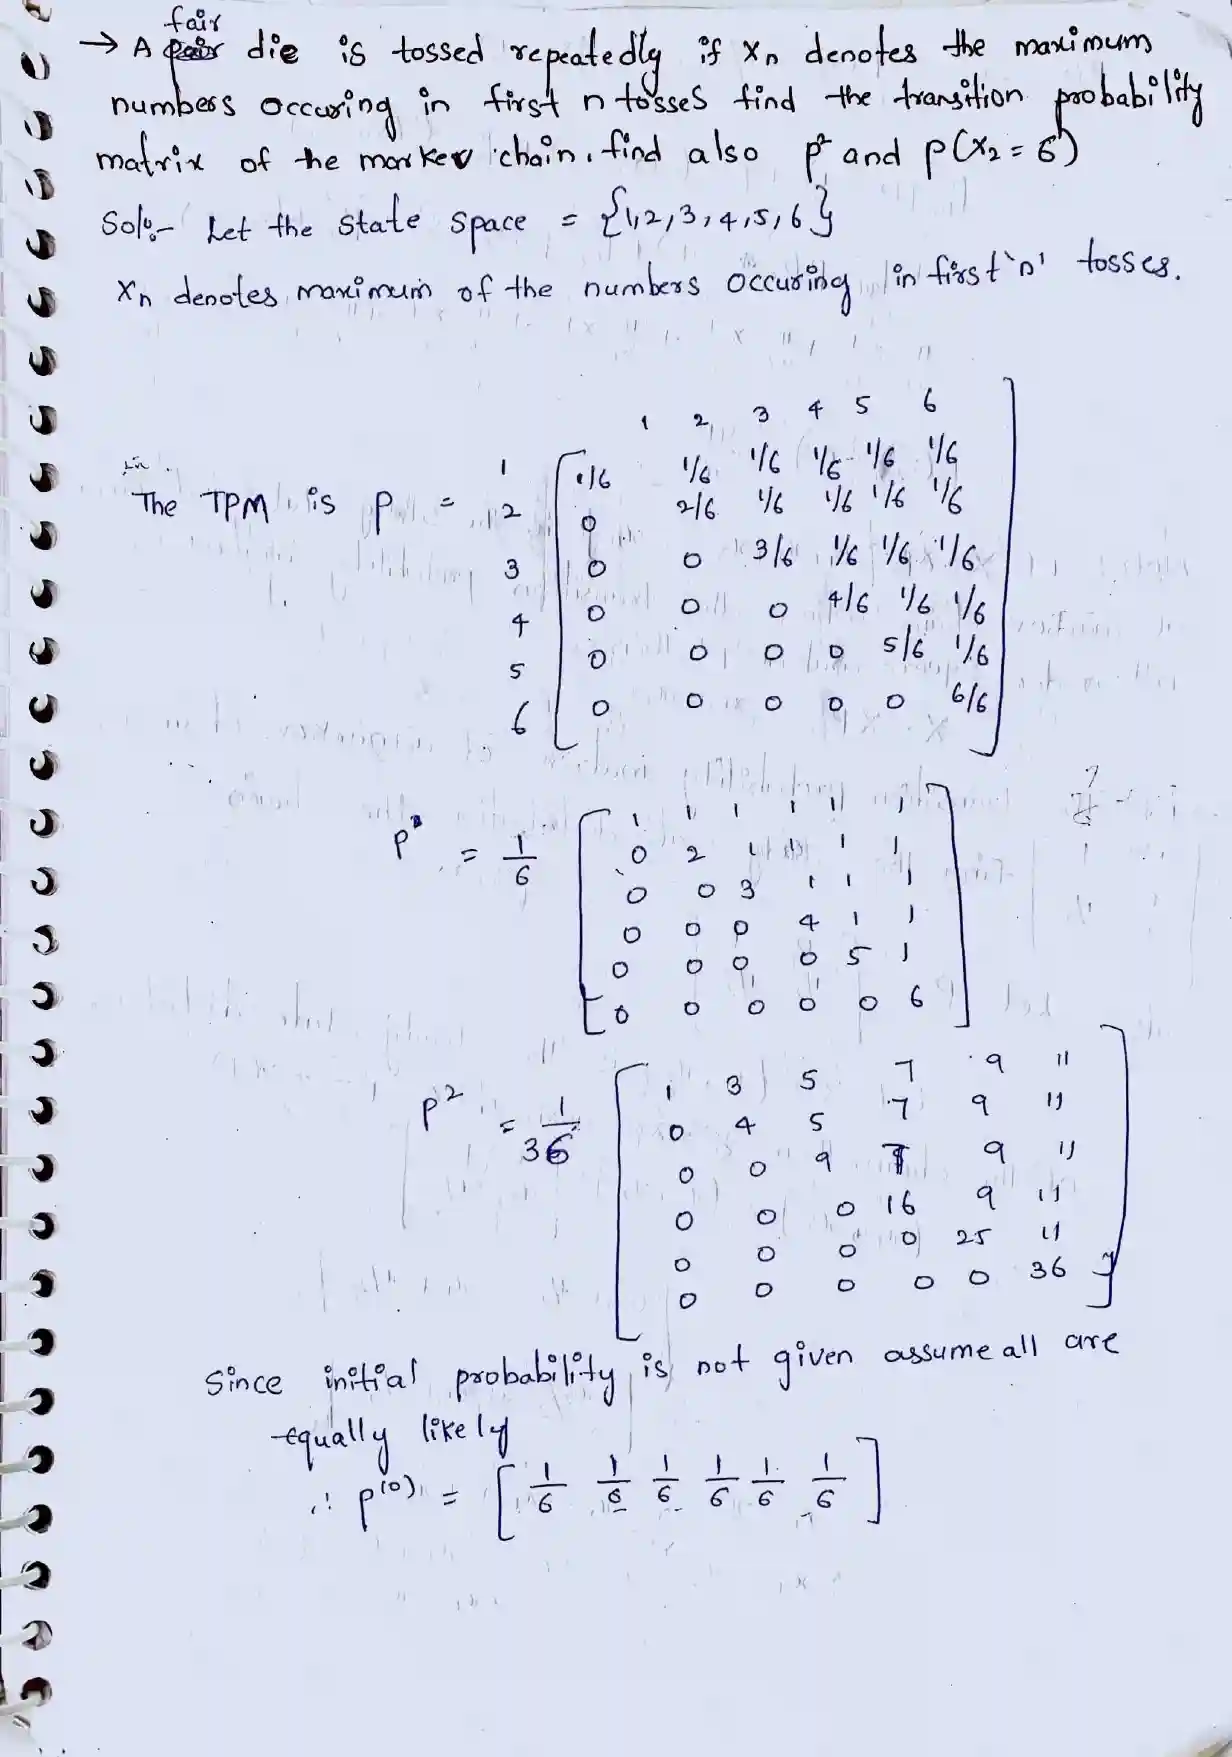 fair
→ A die is tossed repeatedly if Xn denotes the maximum
numbers occuring in first n tosses find the transition probability
matrix of the markev chain. find also p² and p(X₂ = 6)
Sol:- Let the state space = {1,2,3,4,5,6}
Xn denotes maximum of the numbers occuring in first 'n' tosses.
1 2 3 4 5 6
The TPM is p =
1 [ 1/6 1/6 1/6 1/6 1/6 1/6
2 0 2/6 1/6 1/6 1/6 1/6
3 0 0 3/6 1/6 1/6 1/6
4 0 0 0 4/6 1/6 1/6
5 0 0 0 0 5/6 1/6
6 0 0 0 0 0 6/6 ]
p = 1/6 [ 1 1 1 1 1 1
0 2 1 1 1 1
0 0 3 1 1 1
0 0 0 4 1 1
0 0 0 0 5 1
0 0 0 0 0 6 ]
p² = 1/36 [ 1 3 5 7 9 11
0 4 5 7 9 11
0 0 9 7 9 11
0 0 0 16 9 11
0 0 0 0 25 11
0 0 0 0 0 36 ]
Since initial probability is not given assume all are
equally likely
∴ p⁽⁰⁾ = [ 1/6 1/6 1/6 1/6 1/6 1/6 ]